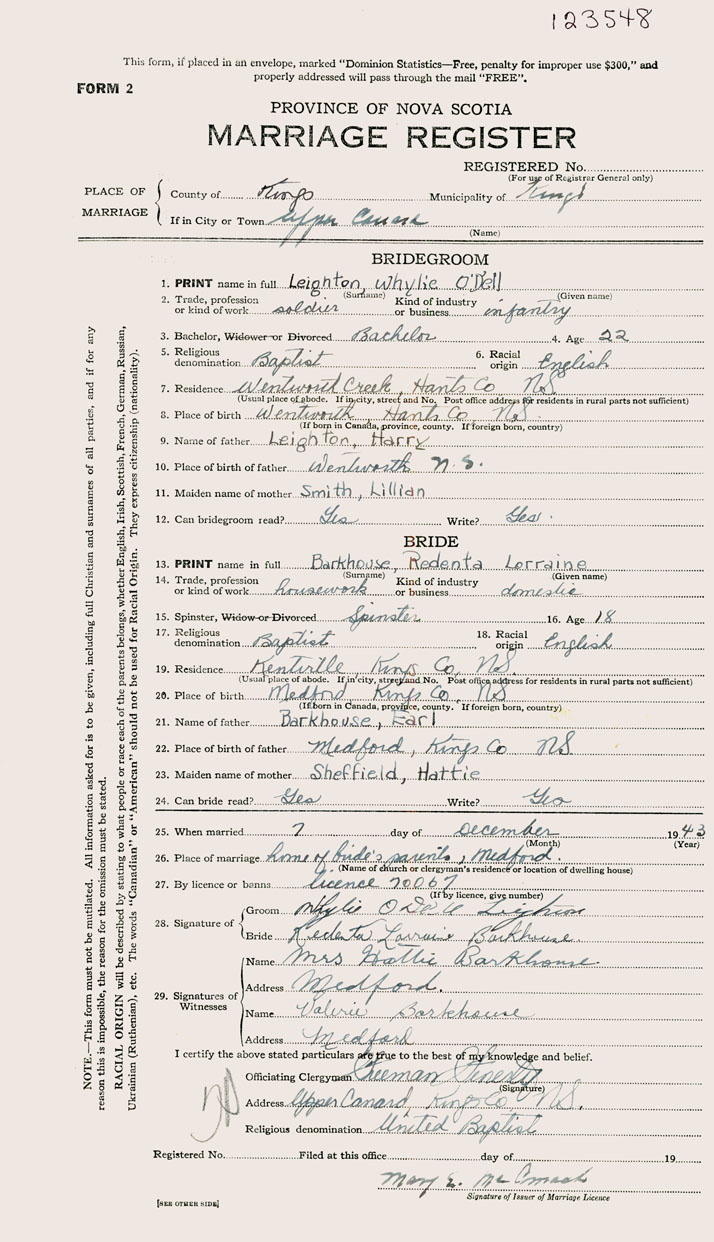 123548
This form, if placed in an envelope, marked "Dominion Statistics—Free, penalty for improper use $300," and
properly addressed will pass through the mail "FREE".
FORM 2
PROVINCE OF NOVA SCOTIA
MARRIAGE REGISTER
REGISTERED No.
(For use of Registrar General only)
PLACE OF MARRIAGE
County of Kings Municipality of Kings
If in City or Town Upper Canard
(Name)
BRIDEGROOM
1. PRINT name in full Leighton, Whylie O'Dell
(Surname) (Given name)
2. Trade, profession or kind of work soldier Kind of industry or business infantry
3. Bachelor, Widower or Divorced Bachelor 4. Age 22
5. Religious denomination Baptist 6. Racial origin English
7. Residence Wentworth Creek, Hants Co NS
(Usual place of abode. If in city, street and No. Post office address for residents in rural parts not sufficient)
8. Place of birth Wentworth, Hants Co N.S.
(If born in Canada, province, county. If foreign born, country)
9. Name of father Leighton, Harry
10. Place of birth of father Wentworth N.S.
11. Maiden name of mother Smith, Lillian
12. Can bridegroom read? Yes Write? Yes.
BRIDE
13. PRINT name in full Barkhouse, Redenta Lorraine
(Surname) (Given name)
14. Trade, profession or kind of work housework Kind of industry or business domestic
15. Spinster, Widow or Divorced Spinster 16. Age 18
17. Religious denomination Baptist 18. Racial origin English
19. Residence Kings Co, N.S.
(Usual place of abode. If in city, street and No. Post office address for residents in rural parts not sufficient)
20. Place of birth Medford, Kings Co NS
(If born in Canada, province, county. If foreign born, country)
21. Name of father Barkhouse, Earl
22. Place of birth of father Medford, Kings Co NS
23. Maiden name of mother Sheffield, Hattie
24. Can bride read? Yes Write? Yes
25. When married 7 day of December 1943
(Month) (Year)
26. Place of marriage home of bride's parents, Medford.
(Name of church or clergyman's residence or location of dwelling house)
27. By licence or banns licence 70067
(If by licence, give number)
28. Signature of
Groom Whylie O'Dell Leighton
Bride Redenta Lorraine Barkhouse.
29. Signatures of Witnesses
Name Mrs Hattie Barkhouse.
Address Medford.
Name Valerie Barkhouse
Address Medford
I certify the above stated particulars are true to the best of my knowledge and belief.
Officiating Clergyman Freeman
(Signature)
Address Upper Canard, Kings Co NS.
Religious denomination United Baptist
Registered No. Filed at this office day of 19
Mary E.
Signature of Issuer of Marriage Licence
[SEE OTHER SIDE]
NOTE.—This form must not be mutilated. All information asked for is to be given, including full Christian and surnames of all parties, and if for any
reason this is impossible, the reason for the omission must be stated.
RACIAL ORIGIN will be described by stating to what people or race each of the parents belongs, whether English, Irish, Scottish, French, German, Russian,
Ukrainian (Ruthenian), etc. The words "Canadian" or "American" should not be used for Racial Origin. They express citizenship (nationality).